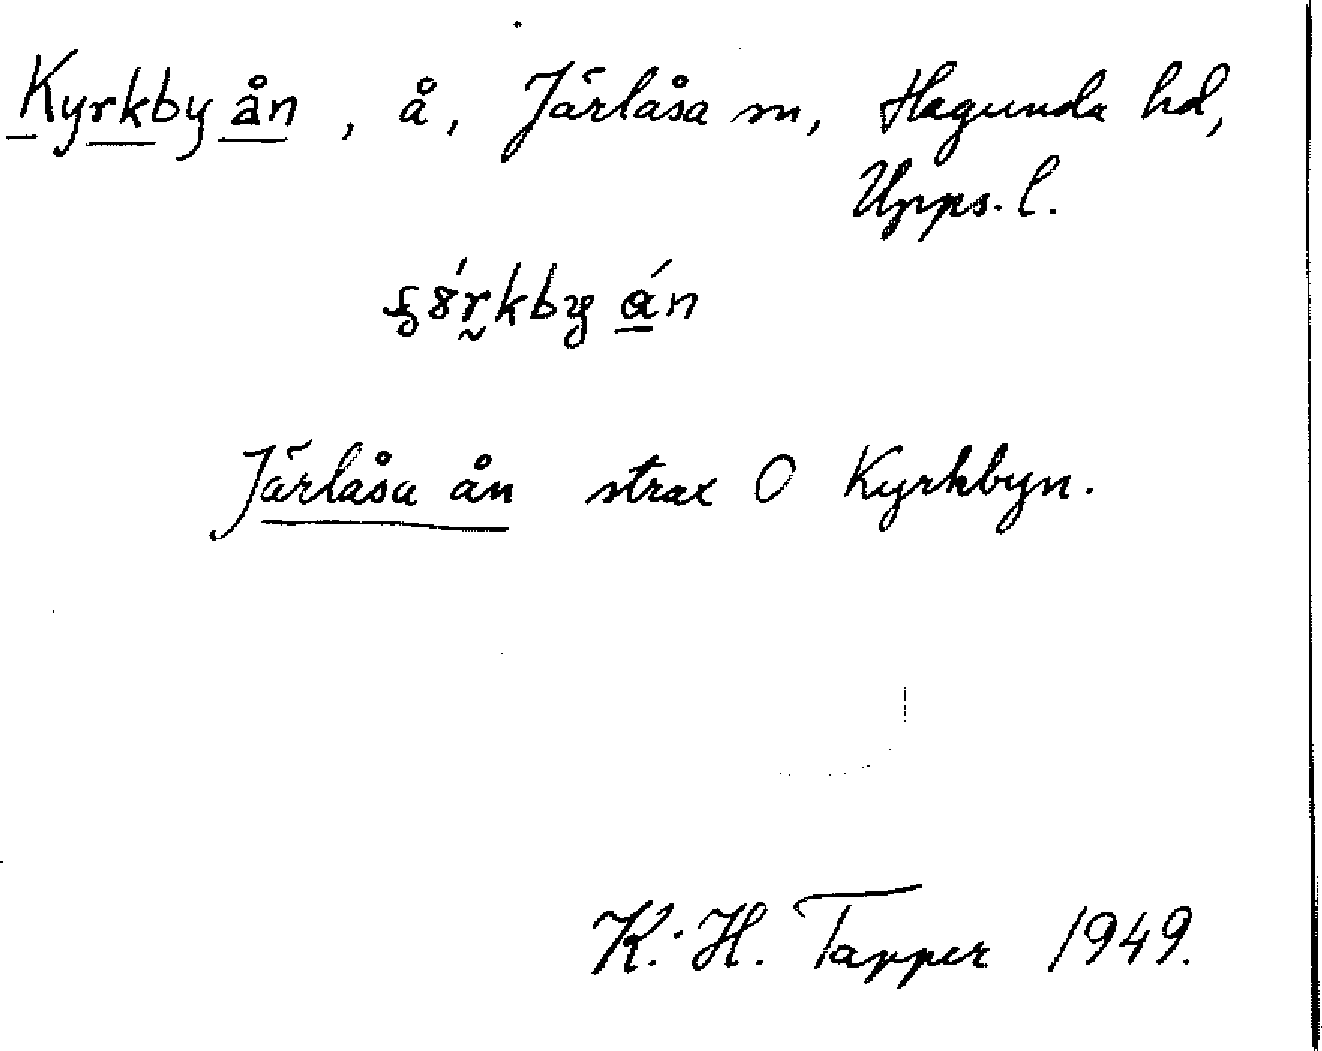 Kyrkby ån, å, Järlåsa sn, Hagunda hd,
Upps. l.
Järlåsa ån strax O Kyrkbyn.
K. H. Tapper 1949.